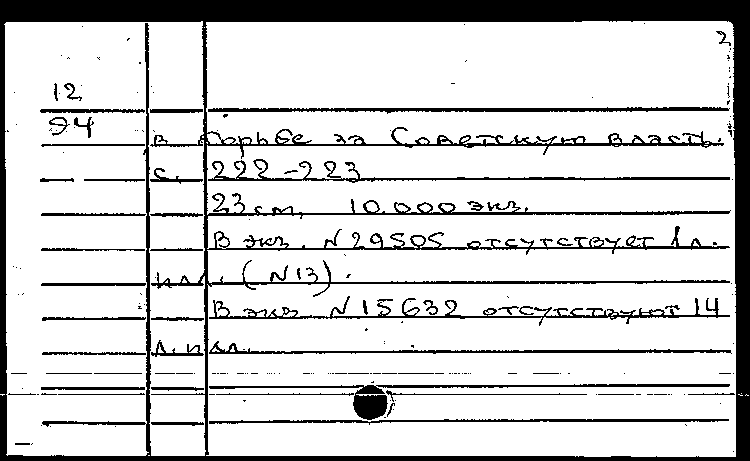 2
12
94
в борьбе за Советскую власть.
с. 222-223
23 см, 10.000 экз.
В экз. N29505 отсутствует 1 л.
илл. (N13).
В экз N15632 отсутствуют 14
л. илл.